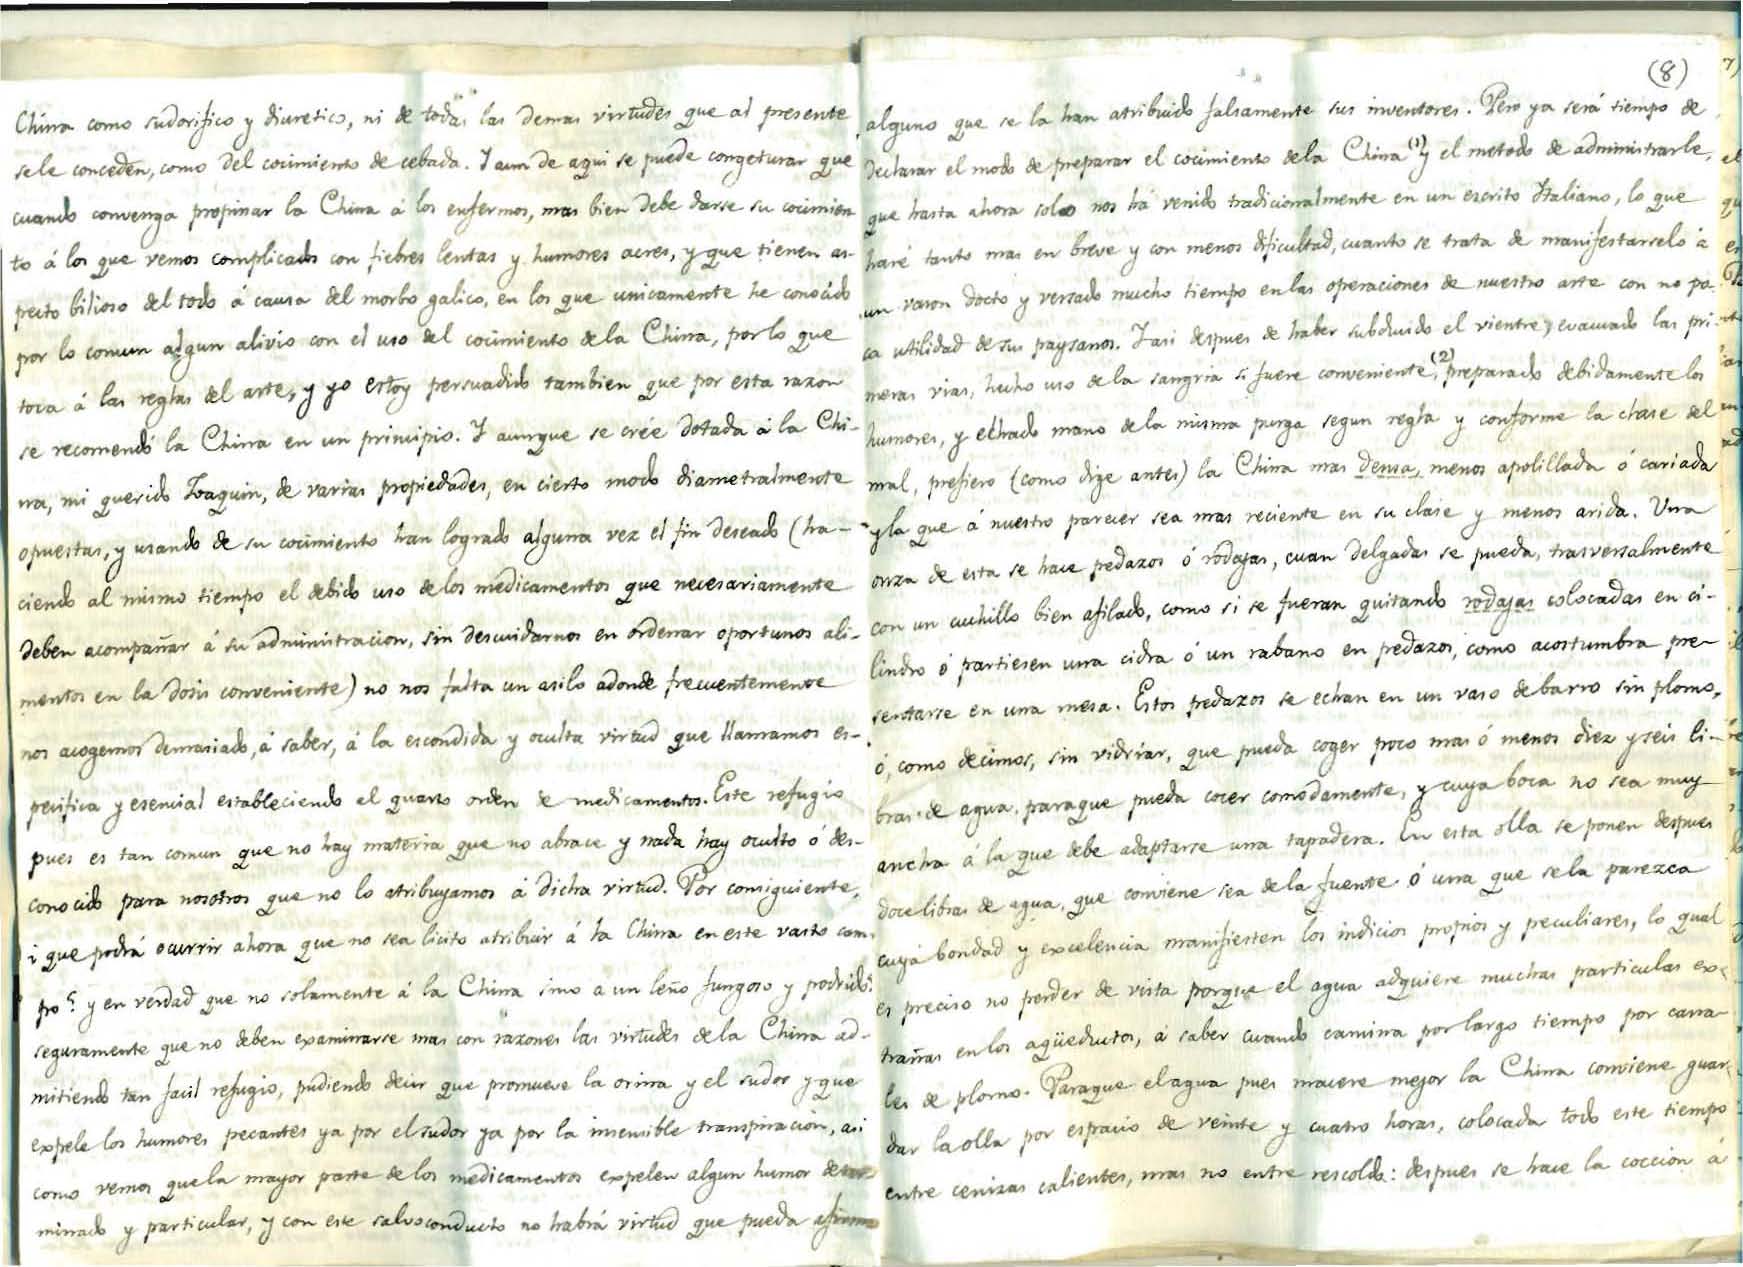 China como sudorifico y diuretico, ni de todas las demas virtudes que al presente
sele conceden, como del cocimiento de cebada. I aun de aqui se puede congeturar que
cuando convenga propinar la China á los enfermos, mas bien debe darse su cocimien
to á los que vemos complicados con fiebres lentas y humores acres, y que tienen as-
pecto bilioso del todo á causa del morbo galico, en los que unicamente he conocido
por lo comun algun alivio con el uso del cocimiento de la China, por lo que
toca á las reglas del arte, y yo estoy persuadido tambien que por esta razon
se recomendó la China en un principio. I aunque se crée dotada á la Chi-
na, mi querido Joaquin, de varias propiedades, en cierto modo diametralmente
opuestas, y usando de su cocimiento han logrado alguna vez el fin deseado (ha-
ciendo al mismo tiempo el debido uso de los medicamentos que necesariamente
deben acompañar á su administracion, sin descuidarnos en ordenar oportunos ali-
mentos en la dosis conveniente) no nos falta un asilo adonde frecuentemente
nos acogemos demasiado, á saber, á la escondida y oculta virtud que llamamos es-
pecifica y esencial estableciendo el quarto orden de medicamentos. Este refugio
pues es tan comun que no hay materia que no abrace y nada hay oculto ó des-
conocido para nosotros que no lo atribuyamos á dicha virtud. Por consiguiente,
¿ que podrá ocurrir ahora que no sea licito atribuir á la China en este vasto cam-
po? y en verdad que no solamente á la China sino a un leño fungoso y podrido:
seguramente que no deben examinarse mas con razones las virtudes de la China ad-
mitiendo tan facil refugio, pudiendo decir que promueve la orina y el sudor y que
expele los humores pecantes ya por el sudor ya por la insensible transpiracion, asi
como vemos que la mayor parte de los medicamentos expelen algun humor deter-
minado y particular, y con este salvoconducto no habrá virtud que pueda
(8)
alguno que se la han atribuido falsamente sus inventores. Pero ya será tiempo de
declarar el modo de preparar el cocimiento dela China (1) y el metodo de administrarle,
que hasta ahora solo nos há venido tradicionalmente en un escrito Italiano, lo que
haré tanto mas en breve y con menos dificultad, cuanto se trata de manifestarselo á
un varon docto y versado mucho tiempo en las operaciones de nuestro arte con no po-
ca utilidad de sus paysanos. I asi despues de haber subduido el vientre, evacuado las pri-
meras vias, hecho uso de la sangria si fuere conveniente, (2) preparado debidamente los
humores, y echado mano de la misma purga segun regla y conforme la clase del
mal, prefiero (como dige antes) la China mas densa, menos apolillada ó cariada
y la que á nuestro parecer sea mas reciente en su clase y menos arida. Una
onza de esta se hace pedazos ó rodajas, cuan delgadas se pueda, trasversalmente
con un cuchillo bien afilado, como si se fueran quitando rodajas colocadas en ci-
lindro ó partiesen una cidra ó un rabano en pedazos, como acostumbra pre-
sentarse en una mesa. Estos pedazos se echan en un vaso de barro sin plomo,
ó, como decimos, sin vidriar, que pueda coger poco mas ó menos diez y seis li-
bras de agua, paraque pueda cocer comodamente, y cuya boca no sea muy
ancha á la que debe adaptarse una tapadera. En esta olla se ponen despues
doce libras de agua, que conviene sea de la fuente ó una que sela parezca
cuya bondad y excelencia manifiesten los indicios propios y peculiares, lo qual
es preciso no perder de vista porque el agua adquiere muchas particulas ex-
trañas en los aqüeductos, á saber cuando camina por largo tiempo por cana-
les de plomo. Paraque el agua pues macere mejor la China conviene guar-
dar la olla por espacio de veinte y cuatro horas, colocada todo este tiempo
entre cenizas calientes, mas no entre rescoldo: despues se hace la coccion á